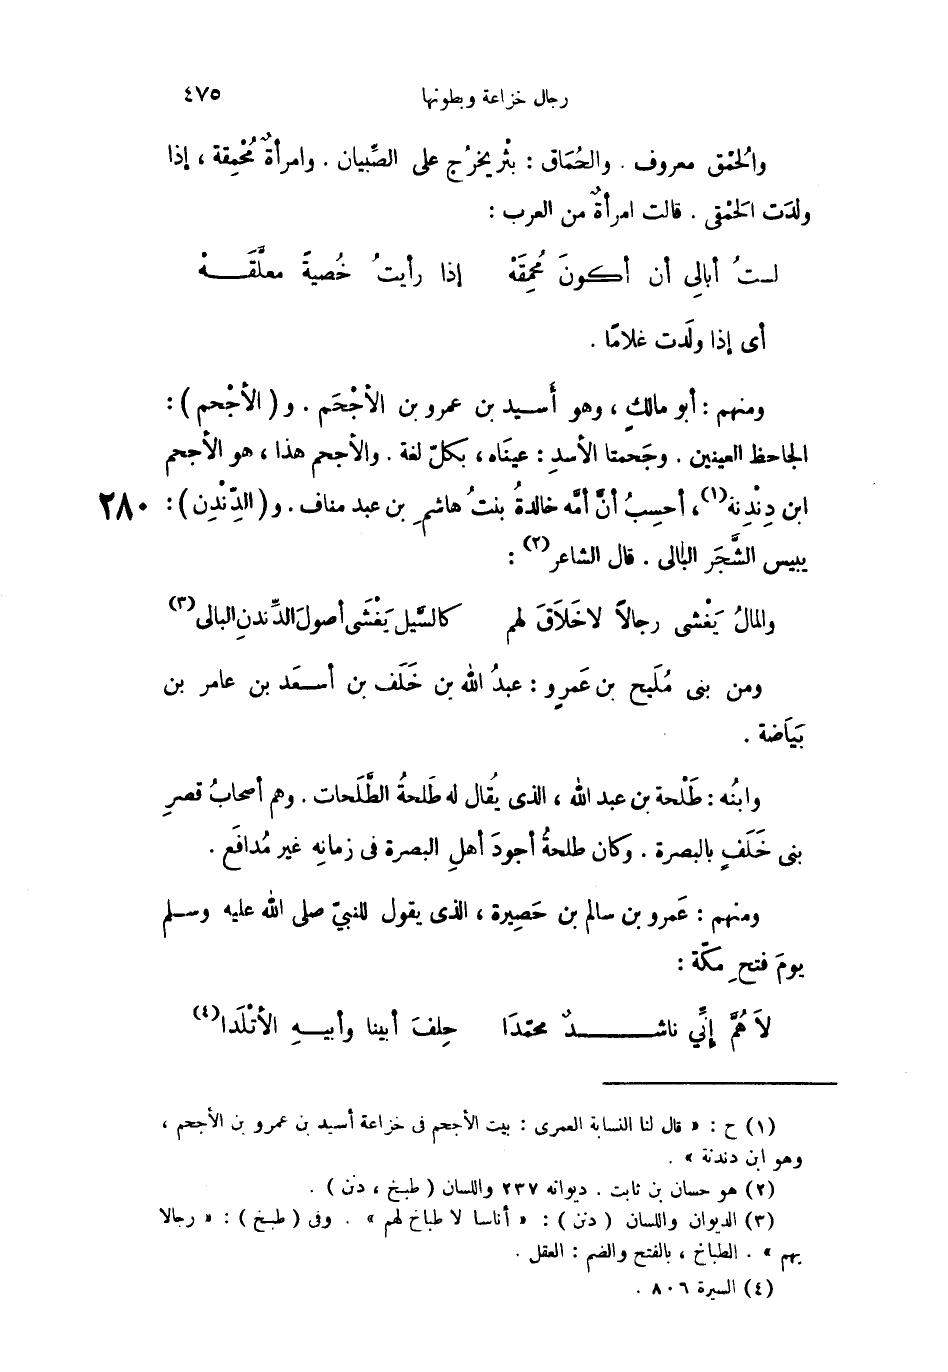 رجال خزاعة وبطونها ٤٧٥
والحُمْق معروف . والحُمَاق : بثْر يخرُج على الصِّبيان . وامرأةٌ مُحْمِقة ، إذا
ولدَت الحَمْقى . قالت امرأةٌ من العرب :
لستُ أبالِي أن أكونَ مُحمِقَهْ إذا رأيتُ خُصيةً معلَّقَهْ
أى إذا ولَدت غلامًا .
ومنهم : أبو مالكٍ ، وهو أَسيد بن عمرو بن الأجْحَم . و ( الأجْحم ) :
الجاحظ العينين . وجَحمتا الأسدِ : عيناه ، بكلّ لغة . والأجحم هذا ، هو الأجحم
ابن دِنْدِنة(١) ، أحسِبُ أنَّ أمَّه خالدةُ بنتُ هاشمِ بن عبد مناف . و ( الدِّنْدِن ) : ٢٨٠
يبيس الشَّجَر البالى . قال الشاعر(٢) :
والمالُ يَغْشى رجالاً لا خَلَاقَ لهم كالسَّيل يَغْشَى أصولَ الدِّندنِ البالى(٣)
ومن بنى مُلَيح بن عَمرٍو : عبدُ الله بن خَلَف بن أسعَد بن عامر بن
بَيَاضة .
وابنُه : طَلْحة بن عبد الله ، الذى يُقال له طَلحةُ الطَّلَحات . وهم أصحابُ قصرِ
بنى خَلَفٍ بالبصرة . وكان طلحةُ أجودَ أهلِ البصرة فى زمانِه غير مُدافَع .
ومنهم : عَمرو بن سالم بن حَصِيرة ، الذى يقول للنبيّ صلى الله عليه وسلم
يومَ فتحِ مكّة :
لاَهُمَّ إنِّي ناشدٌ محمّدَا حِلفَ أبينا وأبيهِ الأتْلَدا(٤)
(١) ح : « قال لنا النسابة العمرى : بيت الأجحم فى خزاعة أسيد بن عمرو بن الأجحم ،
وهو ابن دندنة » .
(٢) هو حسان بن ثابت . ديوانه ٢٣٧ واللسان ( طبخ ، دنن ) .
(٣) الديوان واللسان ( دنن ) : « أناسا لا طباخ لهم » . وفى ( طبخ ) : « رجالا
بهم » . الطباخ ، بالفتح والضم : العقل .
(٤) السيرة ٨٠٦ .